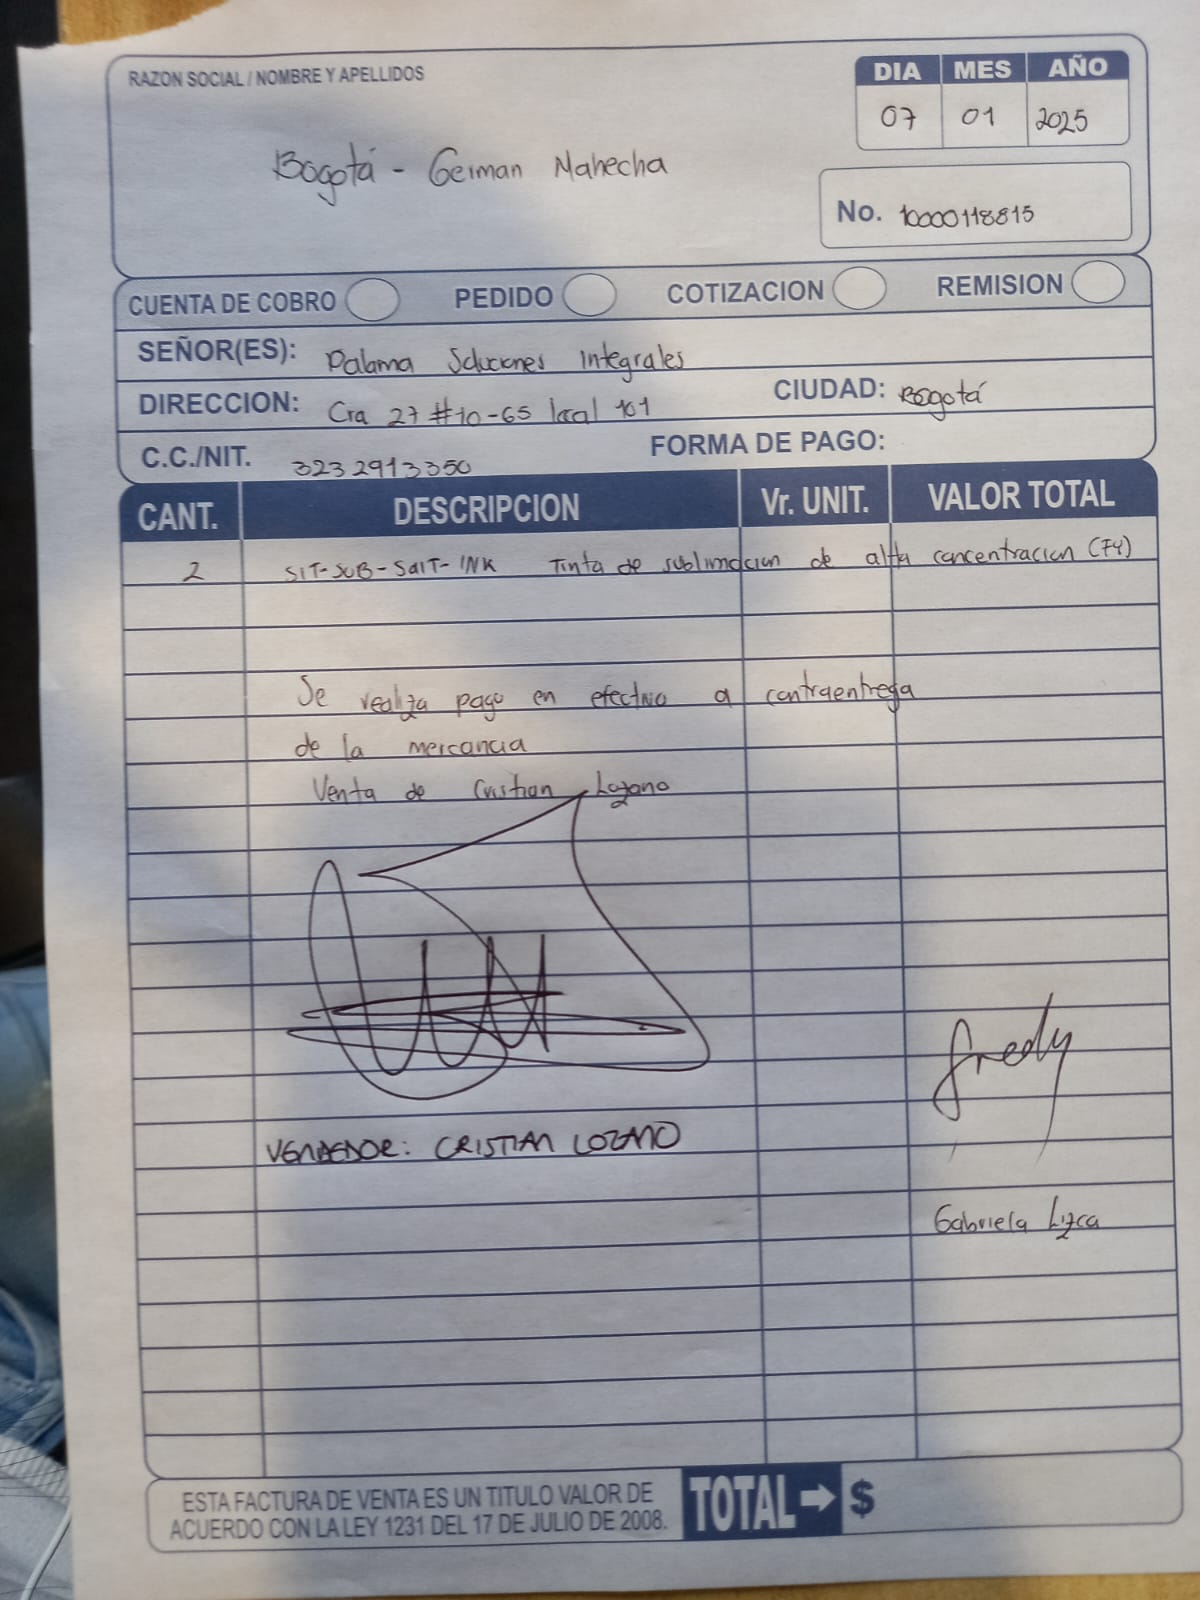 RAZON SOCIAL / NOMBRE Y APELLIDOS
DIA MES AÑO
07 01 2025
Bogotá - German Mahecha
No. 10000118815
CUENTA DE COBRO PEDIDO COTIZACION REMISION
SEÑOR(ES): Palama Soluciones Integrales
DIRECCION: Cra 27 #10-65 local 101 CIUDAD: Bogotá
C.C./NIT. 3232913350 FORMA DE PAGO:
CANT. DESCRIPCION Vr. UNIT. VALOR TOTAL
2 SIT-SUB-SAIT-INK Tinta de sublimacion de alta concentracion (F4)
Se realiza pago en efectivo a contraentrega
de la mercancia
Venta de Cristian Lozano
Fredy
VENDEDOR: CRISTIAN LOZANO
Gabriela
ESTA FACTURA DE VENTA ES UN TITULO VALOR DE
ACUERDO CON LA LEY 1231 DEL 17 DE JULIO DE 2008.
TOTAL → $